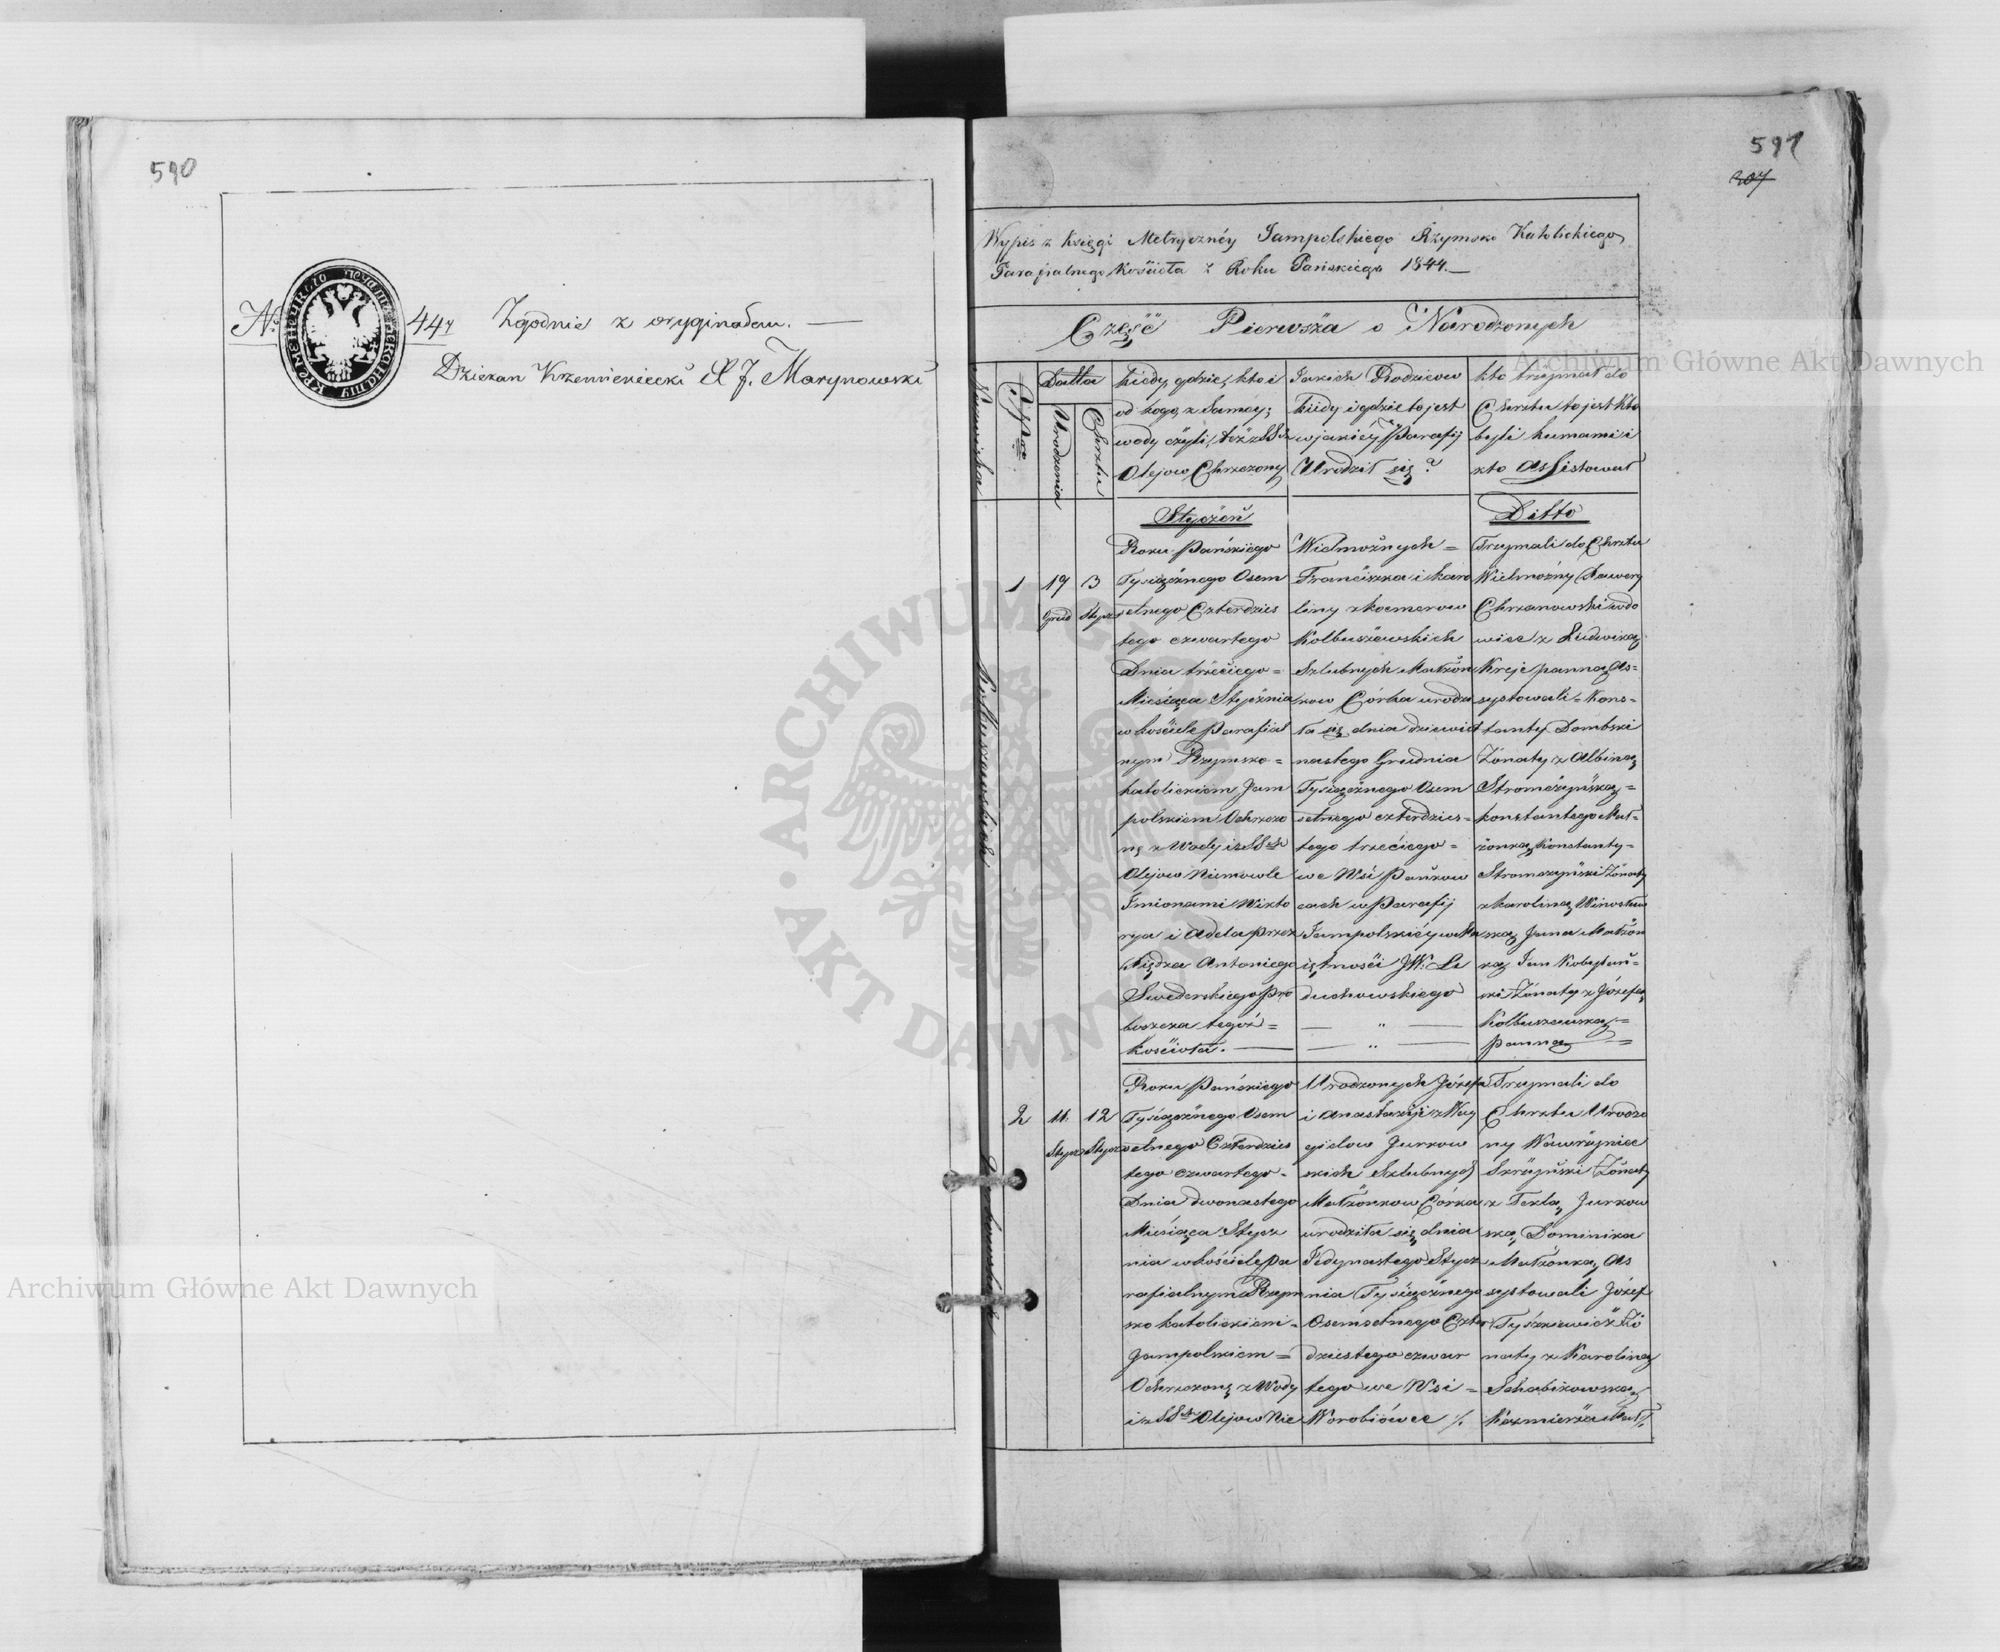 590
N. 447 Zgodnie z oryginałem. —
Dziekan Krzemieniecki X J. Marynowski
597
207
Wypis z Księgi Metrycznéy Jampolskiego Rzymsko Katolickiego
Parafialnego Kościoła z Roku Pańskiego 1844. —
Część Pierwsza o Narodzonych
Nazwiska
Datta
Urodzenia
Chrztu
kiedy, gdzie, kto i
od kogo, z Saméy
wody czyli téż z SS
Olejow Chrzczony
Jakich Rodzicow
kiedy i gdzie to jest
w jakiéy Parafij
Urodził się?
kto trzymał do
Chrztu to jest kto
byli kumami i
kto Assistował
Kolbuszewskich
Styczeń
1
19
Grud
3
Stycz
Roku Pańskiego
Tysiącznego Osem
setnego Czterdzies
tego czwartego
Dnia trzeciego =
Miesiąca Stycznia
w kościele Parafial
nym Rzymsko =
katolickiem Jam
polskiem Ochrzczo
ną z Wody i z SS
Olejow Niemowle
Imionami Wikto
rya i Adela przez
Xiędza Antoniego
Swederskiego Pro
boszcza tegoż =
kościoła. —
Wielmożnych =
Franciszka i Karo
liny z Koemerow
Kolbuszewskich
Szlubnych Małżon
kow Córka urodzi
ła się dnia dziewięt
nastego Grudnia
Tysiącznego Osem
setnego czterdzies =
tego trzeciego =
we Wsi Pańkow
cach w Parafij
Jampolskiéy w Ma
iętności JW: Le
duchowskiego
— " —
— " —
Ditto
Trzymali do Chrztu
Wielmożny Xawery
Chrzanowski wdo
wiec z Ludwiką
Kreje panną As=
systowali = Kons=
tanty Dombski
Żónaty z Albiną
Stromczyńską =
Konstantego Mał=
żonką Konstanty =
Stromczyński Żónaty
z Karoliną
ską Jana Małżon
ką Jan Kobylań=
ski Żónaty z Józefą
Kolbuszewską =
Panną =
2
11.
Stycz
12
Stycz
Roku Pańskiego
Tysiącznego Osem
setnego Czterdzies
tego czwartego =
Dnia dwonastego
Miesiąca Stycz
nia w kościele Pa
rafialnym Rzym
sko katolickiem =
Jampolskiem =
Ochrzczoną z Wody
i z SS Olejow Nie
Urodzonych Józefa
i Anastazÿi z Wey
gielow Jurkow
skich Szlubnych
Małżonkow Córka
urodziła się dnia
Jedynastego Stycz
nia Tysiącznego
Osemsetnego Czter
dziestego czwar
tego we Wsi =
Worobiówce ./.
Trzymali do
Chrztu Urodzo
ny Wawrzyniec
Skrzyński Żónaty
z Teklą Jurkow
ską Dominika
Małżonką As
systowali Józef
Tyszkiewicz Żó
naty z Karoliną
Schabikowską
Kazmierza Małż.
Archiwum Główne Akt Dawnych
Archiwum Główne Akt Dawnych